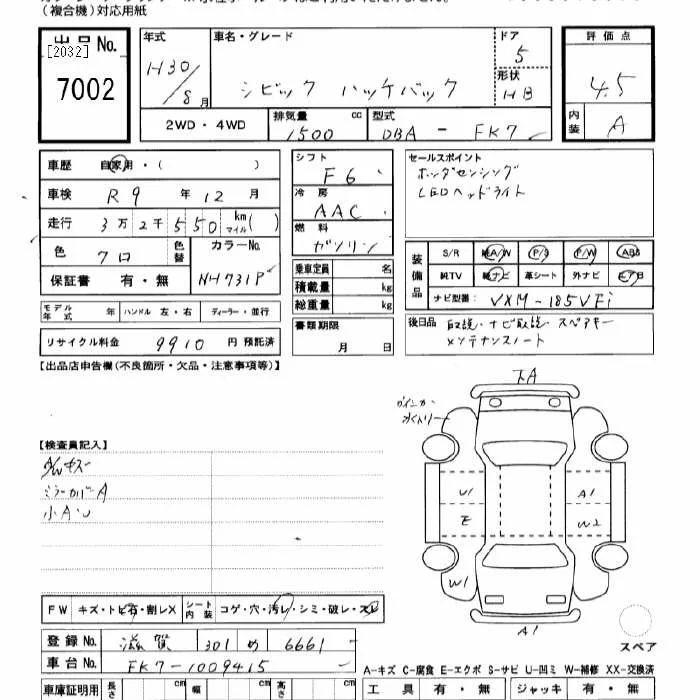 (複合機)対応用紙
出品No.
[2032]
7002
年式
H30/8月
車名・グレード
シビック ハッチバック
ドア
5
形状
HB
評価点
4.5
内装
A
2WD・4WD
排気量
1500 cc
型式
DBA - FK7
車歴 自家用・( )
車検 R9年 12月
走行 3万2千550 kmマイル( )
色 クロ 色替
カラーNo. NH731P
保証書 有・無
シフト
F6
冷房
AAC
燃料
ガソリン
乗車定員 名
積載量 kg
総重量 kg
書類期限
月 日
セールスポイント
ホンダセンシング
LEDヘッドライト
装備品
S/R 純A/W P/S P/W ABS
純TV 純ナビ 革シート 外ナビ エアB
ナビ型番: VXM-185VFi
後日品 取説・ナビ取説・スペアキー
メンテナンスノート
モデル年式 年 ハンドル 左・右 ディーラー・並行
リサイクル料金 9910 円 預託済
【出品店申告欄(不良箇所・欠品・注意事項等)】
【検査員記入】
A/Wキズ
ミラーカバーA
小A U
ウインカー
A
U1
A1
E
W2
W1
A1
スペア
FW キズ・トビ石・割レX
シート内装 コゲ・穴・汚レ・シミ・破レ・スレ
登録No. 滋賀 301 め 6661
車台No. FK7-1009415
A-キズ C-腐食 E-エクボ S-サビ U-凹ミ W-補修 XX-交換済
車庫証明用 長さ cm 幅 cm 高さ cm
工具 有・無 ジャッキ 有・無